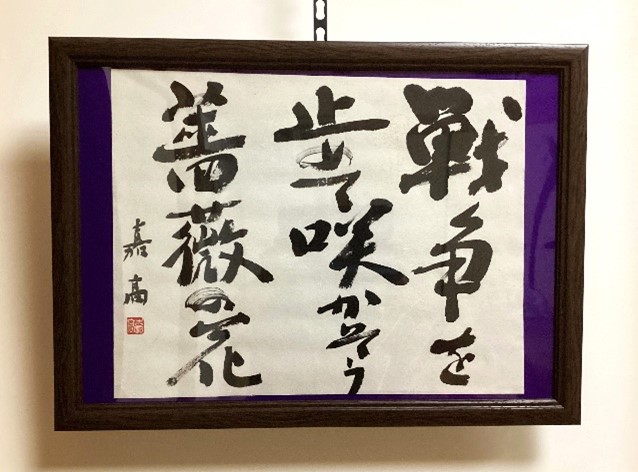 戦争を
止めて咲かそう
薔薇の花
嘉高